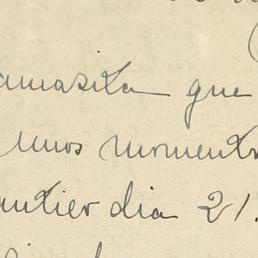 amasita que
unos momento
antier dia 21.